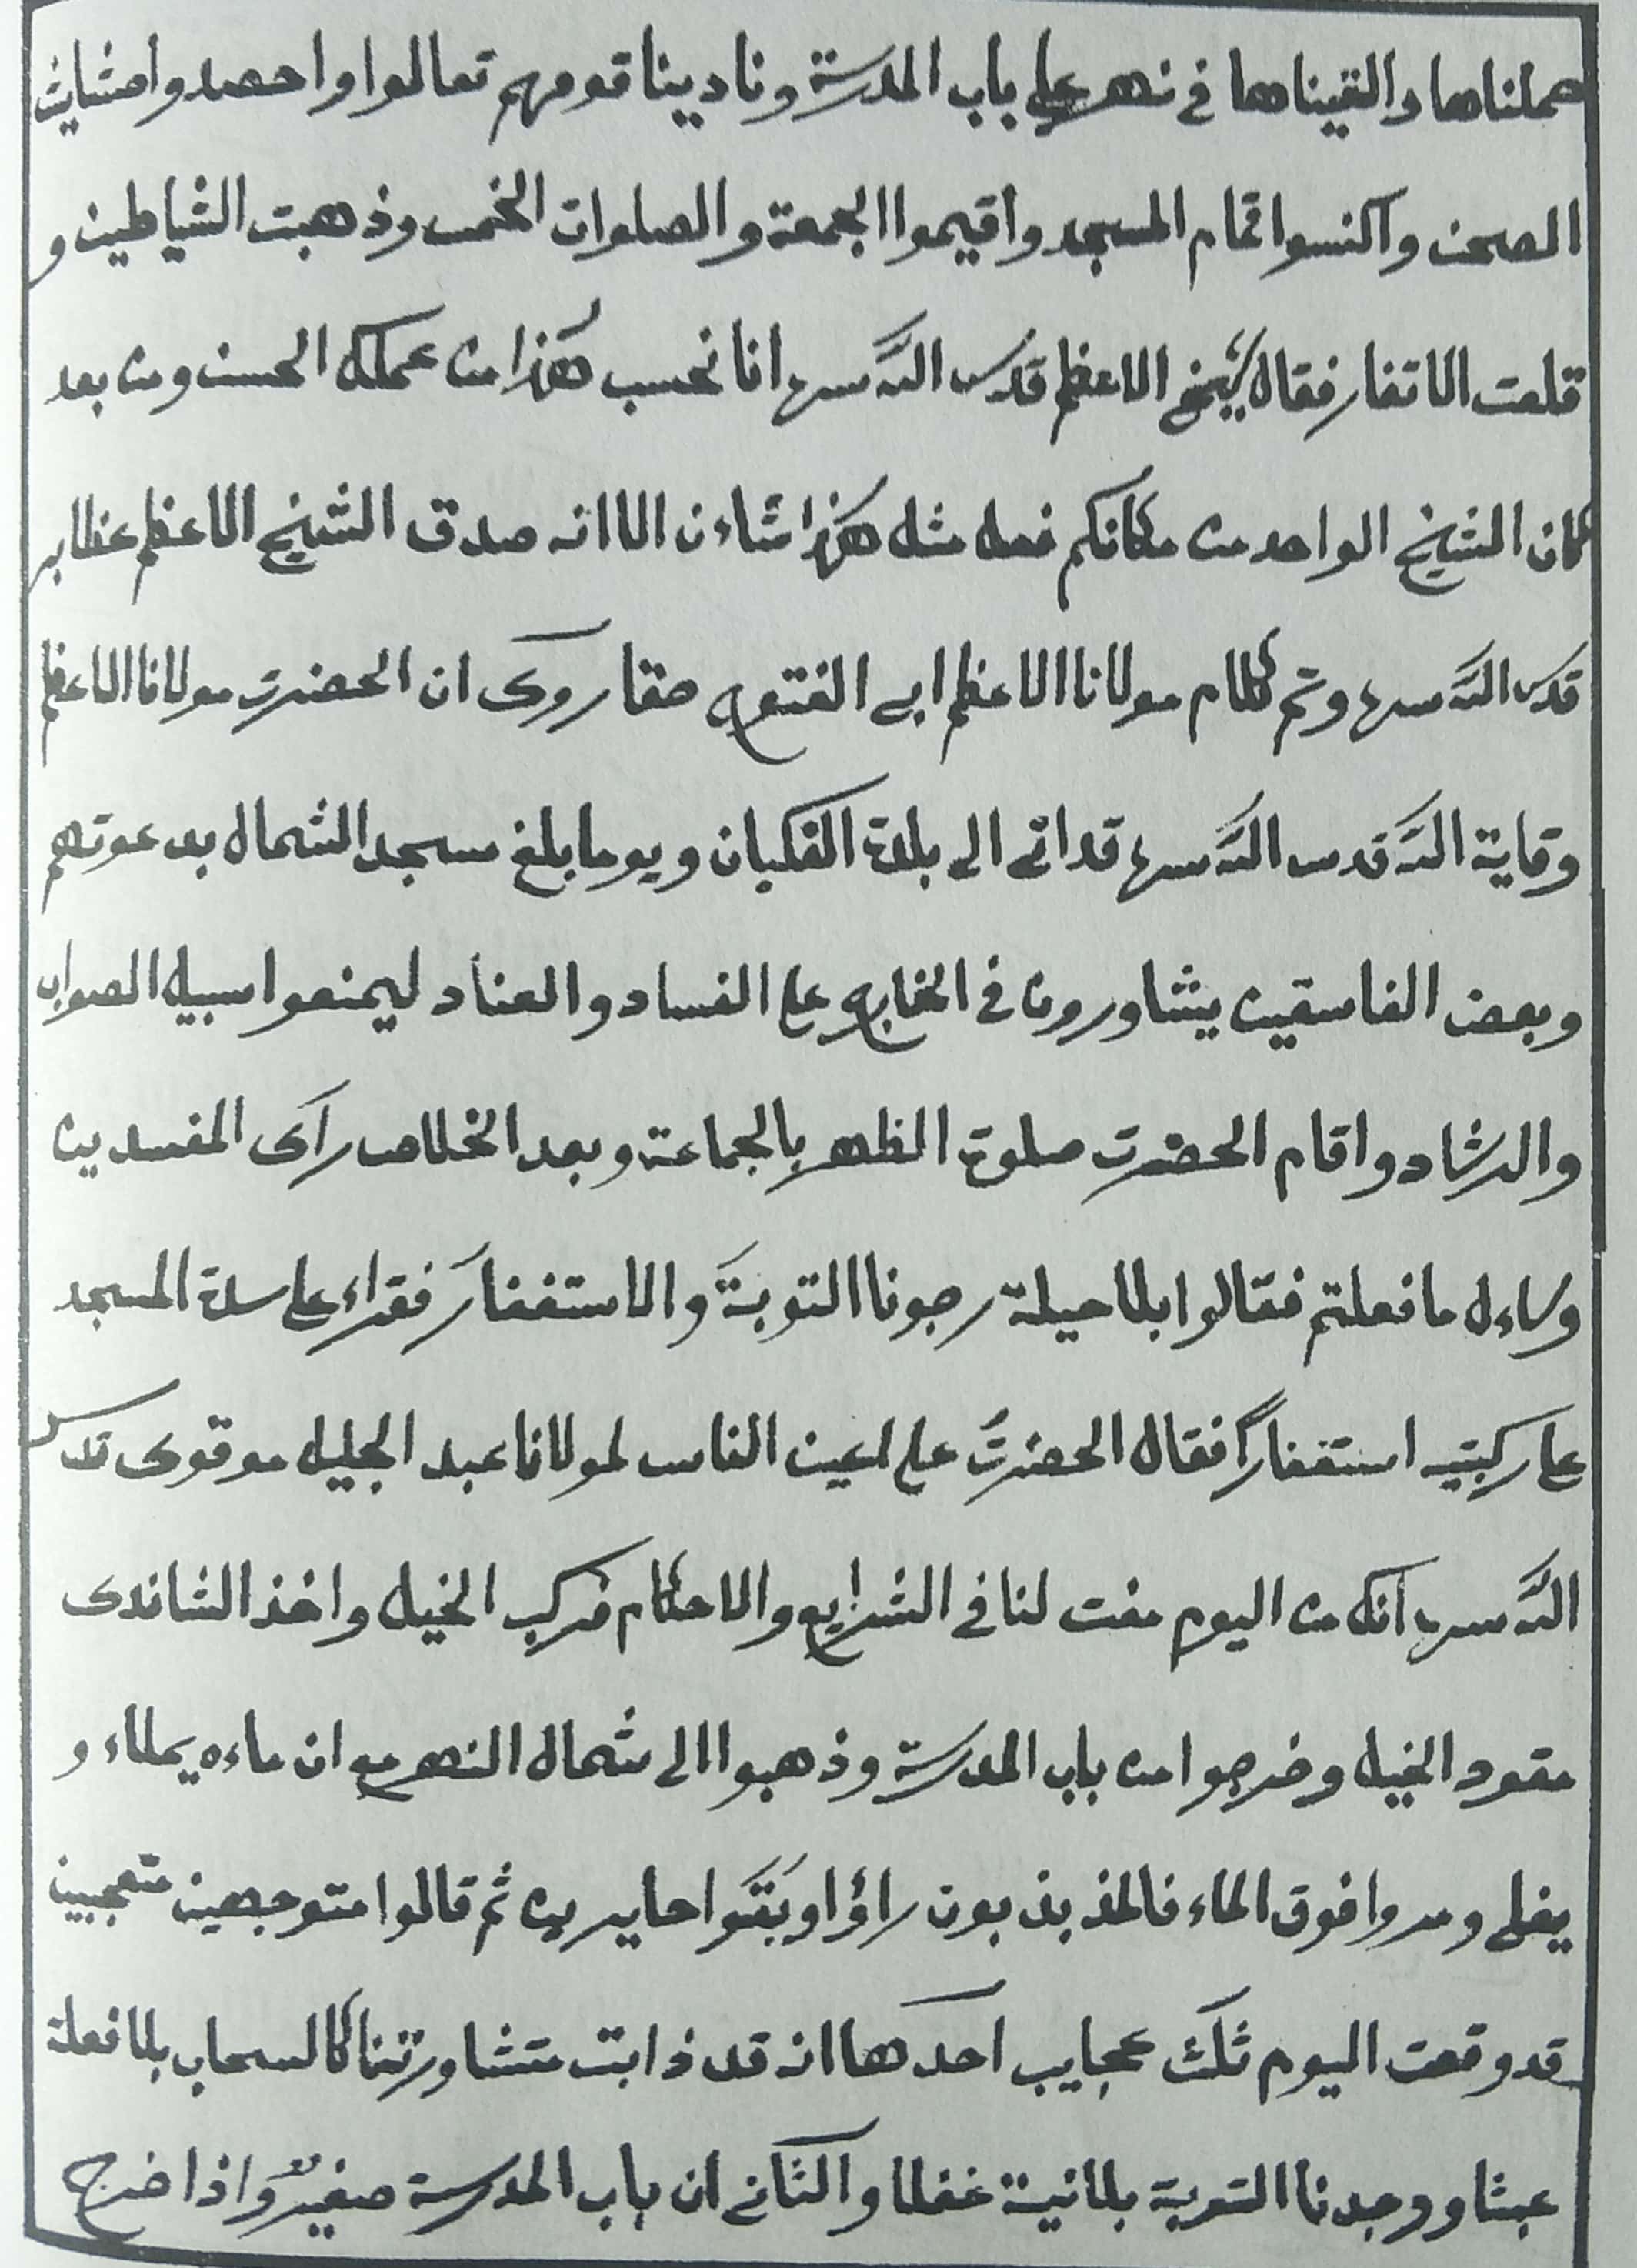 حملناها والقيناها في نهر على باب المدرسة ونادينا قومهم تعالوا واحصدوا حشايش
الصحن واكنسوا تمام المسجد واقيموا الجمعة والصلوات الخمس وذهبت الشياطين و
قلعت الاتفار فقال الشيخ الاعظم قدس الله سره انا نحسب هكذا من عملك الحسن ومن بعد
كان الشيخ الواحد من مكانكم فعل مثل هكذا شاءن الا انه صدق الشيخ الاعظم عظابر
قدس الله سره وتم كلام مولانا الاعظم ابي الفتوح حقا روى ان الحضرت مولانا الاعظم
وقاية الله قدس الله سره قد اتى الى بلدة القكبان ويوما بلغ مسجد الشمال بدعوتهم
وبعض الفاسقين يشاورون في الخارج على الفساد والعناد ليمنعوا سبيل الصواب
والرشاد واقام الحضرت صلوة الظهر بالجماعة وبعد الخلاص رآى المفسدين
وساءل ما فعلتم فقالوا بلا حيلة رجونا التوبةَ والاستغفارَ فقراء على سدة المسجد
على ركبتيه استغفاراً فقال الحضرتَ على اعين الناس لمولانا عبد الجليل موقوى قدس
الله سره انك من اليوم مفت لنا في الشرايع والاحكام فركب الخيل واخذ الشاندى
مقود الخيل وخرجوا من باب المدرسة وذهبوا الى شمال النهر مع ان ماءه يملاء و
يغلى ومروا فوق الماء فالمذبذبون راؤا وبَقَوا حايرين ثم قالوا متوجهين متعجبين
قد وقعت اليوم ثلث عجايب احدها انه قد ذابت متشاورتنا كالسحاب بلا فعلة
عبثا ووجدنا التوبة بلانية غفلا والثاني ان باب المدرسة صغيرٌ واذا خرج